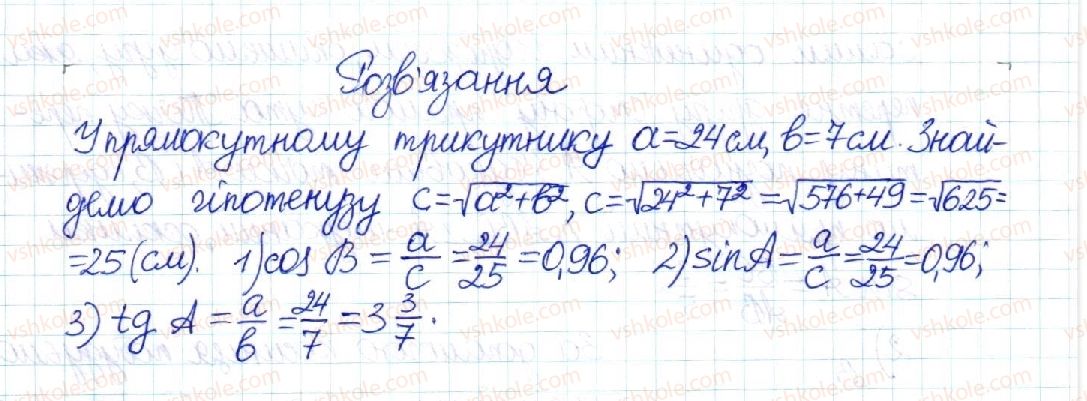 Розв'язання
У прямокутному трикутнику a=24 см, b=7 см. Знай-
демо гіпотенузу c=√a²+b², c=√24²+7²=√576+49=√625=
=25 (см). 1) cos B = a/c = 24/25 = 0,96; 2) sin A = a/c = 24/25 = 0,96;
3) tg A = a/b = 24/7 = 3 3/7.